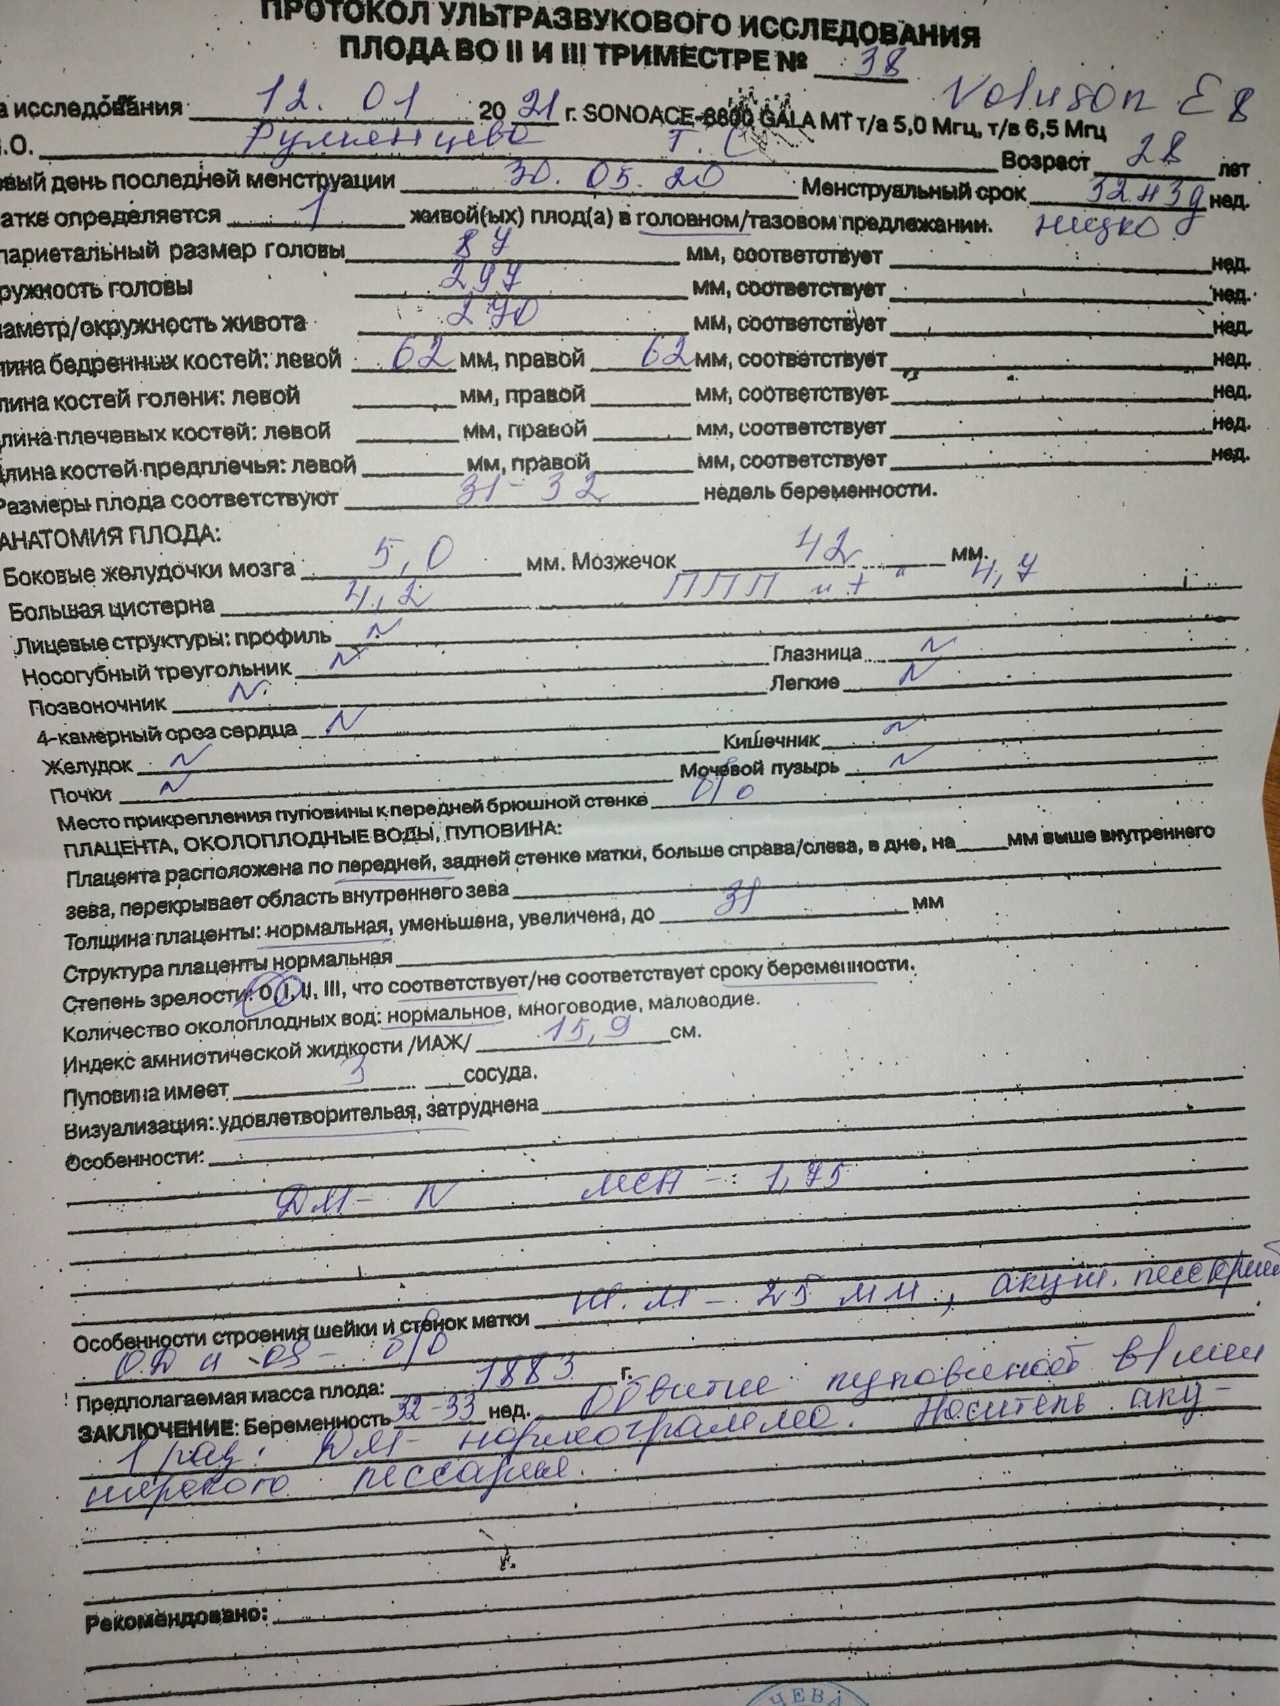 ПРОТОКОЛ УЛЬТРАЗВУКОВОГО ИССЛЕДОВАНИЯ
ПЛОДА ВО II И III ТРИМЕСТРЕ № 38
Voluson E8
а исследования 12. 01 20 21 г. SONOACE-8800 GALA MT т/а 5,0 Мгц, т/в 6,5 Мгц
.О. Румянцева Т. С. Возраст 28 лет
вый день последней менструации 30. 05. 20 Менструальный срок 32н3д нед.
атке определяется 1 живой(ых) плод(а) в головном/тазовом предлежании. низко
париетальный размер головы 87 мм, соответствует нед.
ружность головы 297 мм, соответствует нед.
аметр/окружность живота 270 мм, соответствует нед.
лина бедренных костей: левой 62 мм, правой 62 мм, соответствует нед.
лина костей голени: левой мм, правой мм, соответствует нед.
лина плечевых костей: левой мм, правой мм, соответствует нед.
длина костей предплечья: левой мм, правой мм, соответствует нед.
Размеры плода соответствуют 31-32 недель беременности.
АНАТОМИЯ ПЛОДА:
Боковые желудочки мозга 5,0 мм. Мозжечок 42 мм.
Большая цистерна 4,2 ППП 4,7
Лицевые структуры: профиль N
Носогубный треугольник N Глазница N
Позвоночник N Легкие N
4-камерный срез сердца N
Желудок N Кишечник N
Почки N Мочевой пузырь N
Место прикрепления пуповины к передней брюшной стенке б/о
ПЛАЦЕНТА, ОКОЛОПЛОДНЫЕ ВОДЫ, ПУПОВИНА:
Плацента расположена по передней, задней стенке матки, больше справа/слева, в дне, на мм выше внутреннего
зева, перекрывает область внутреннего зева
Толщина плаценты: нормальная, уменьшена, увеличена, до 31 мм
Структура плаценты нормальная
Степень зрелости: 0, I, II, III, что соответствует/не соответствует сроку беременности.
Количество околоплодных вод: нормальное, многоводие, маловодие.
Индекс амниотической жидкости /ИАЖ/ 15,9 см.
Пуповина имеет 3 сосуда.
Визуализация: удовлетворительая, затруднена
Особенности:
ДМ- N МСА - 1,75
Особенности строения шейки и стенок матки ш.м - 25 мм, акуш. пессарий
б/о
Предполагаемая масса плода: 1883 г.
ЗАКЛЮЧЕНИЕ: Беременность 32-33 нед. Обвитие пуповиной в/шеи
1 раз. ДМ- нормограмма. Носитель аку-
шерского пессария.
Рекомендовано:
ЧЕВА